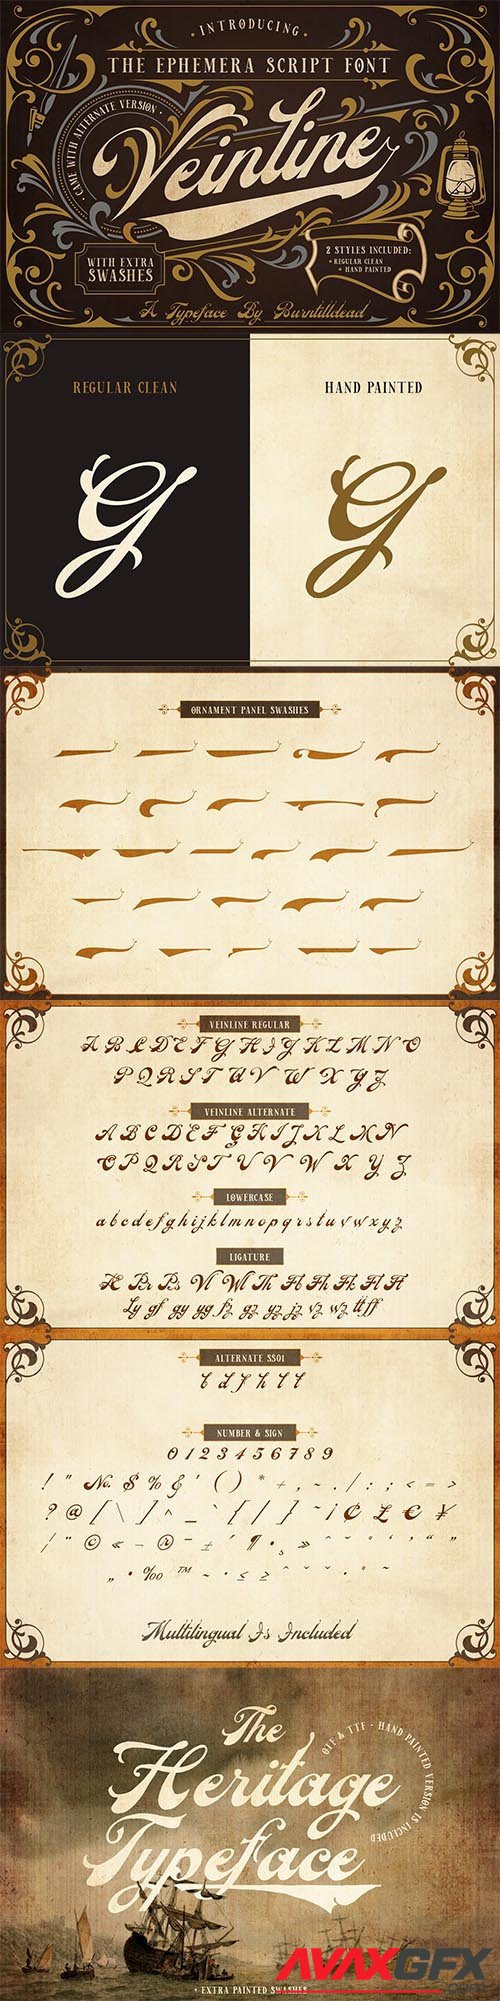 · INTRODUCING ·
THE EPHEMERA SCRIPT FONT
· CAME WITH ALTERNATE VERSION ·
Veinline
WITH EXTRA
SWASHES
2 STYLES INCLUDED:
+ REGULAR CLEAN
+ HAND PAINTED
A Typeface By Burntilldead
REGULAR CLEAN
HAND PAINTED
G
G
ORNAMENT PANEL SWASHES
VEINLINE REGULAR
A B C D E F G H I J K L M N O
P Q R S T U V W X Y Z
VEINLINE ALTERNATE
A B C D E F G H I J K L M N
O P Q R S T U V W X Y Z
LOWERCASE
a b c d e f g h i j k l m n o p q r s t u v w x y z
LIGATURE
ALTERNATE SS01
b d f h l t
NUMBER & SIGN
0 1 2 3 4 5 6 7 8 9
! " No. $ % & ' ( ) * + , - . / : ; < = >
? @ [ \ ] ^ _ ` { | } ~ ¡ ¢ £ € ¥
Multilingual Is Included
The
Heritage
Typeface
OTF & TTF - HAND PAINTED VERSION IS INCLUDED
+ EXTRA PAINTED SWASHES
AVAXGFX